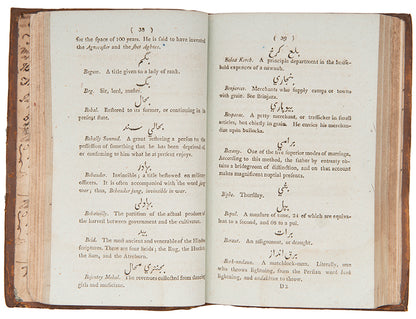 38
for the space of 100 years. He is said to have invented
the Agneeaster and the shet Aghnee.
بيگم
Begum. A title given to a lady of rank.
بيگ
Beg. Sir, lord, master.
بحال
Behal. Restored to its former, or continuing in its
present state.
بحالي سند
Behally Sunnud. A grant restoring a person to the
possession of something that he has been deprived of,
or confirming to him what he at present enjoys.
بهادر
Behauder. Invincible; a title bestowed on military
officers. It is often accompanied with the word jung
war; thus, Behauder jung, invincible in war.
Behauilly. The partition of the actual produce of
the harvest between government and the cultivator.
بيد
Beid. The most ancient and venerable of the Hindoo
scriptures. There are four beids; the Rug, the Huchur,
the Sam, and the Aterburn.
محال
Bejentry Mahal. The revenues collected from dancing
girls and musicians.
39
بلع کرچ
Belea Kerch. A principle department in the house-
hold expences of a nawaub.
بنجاري
Benjaras. Merchants who supply camps or towns
with grain. See Brinjara.
بيوپاري
Beopare. A petty merchant, or trafficker in small
articles, but chiefly in grain. He carries his merchan-
dize upon bullocks.
Beramy. One of the five superior modes of marriage.
According to this method, the father by entreaty obtains
a bridegroom of distinction, and on that account
makes magnificent nuptial presents.
Bighe. Thursday.
Bepul. A measure of time, 24 of which are equiva-
lent to a second, and 60 to a pul.
برات
Beraut. An assignment, or draught.
برق انداز
Berk-undauze. A matchlock-man. Literally, one
who throws lightning, from the Persian word berk
lightning, and andakhtun to throw.
D 2